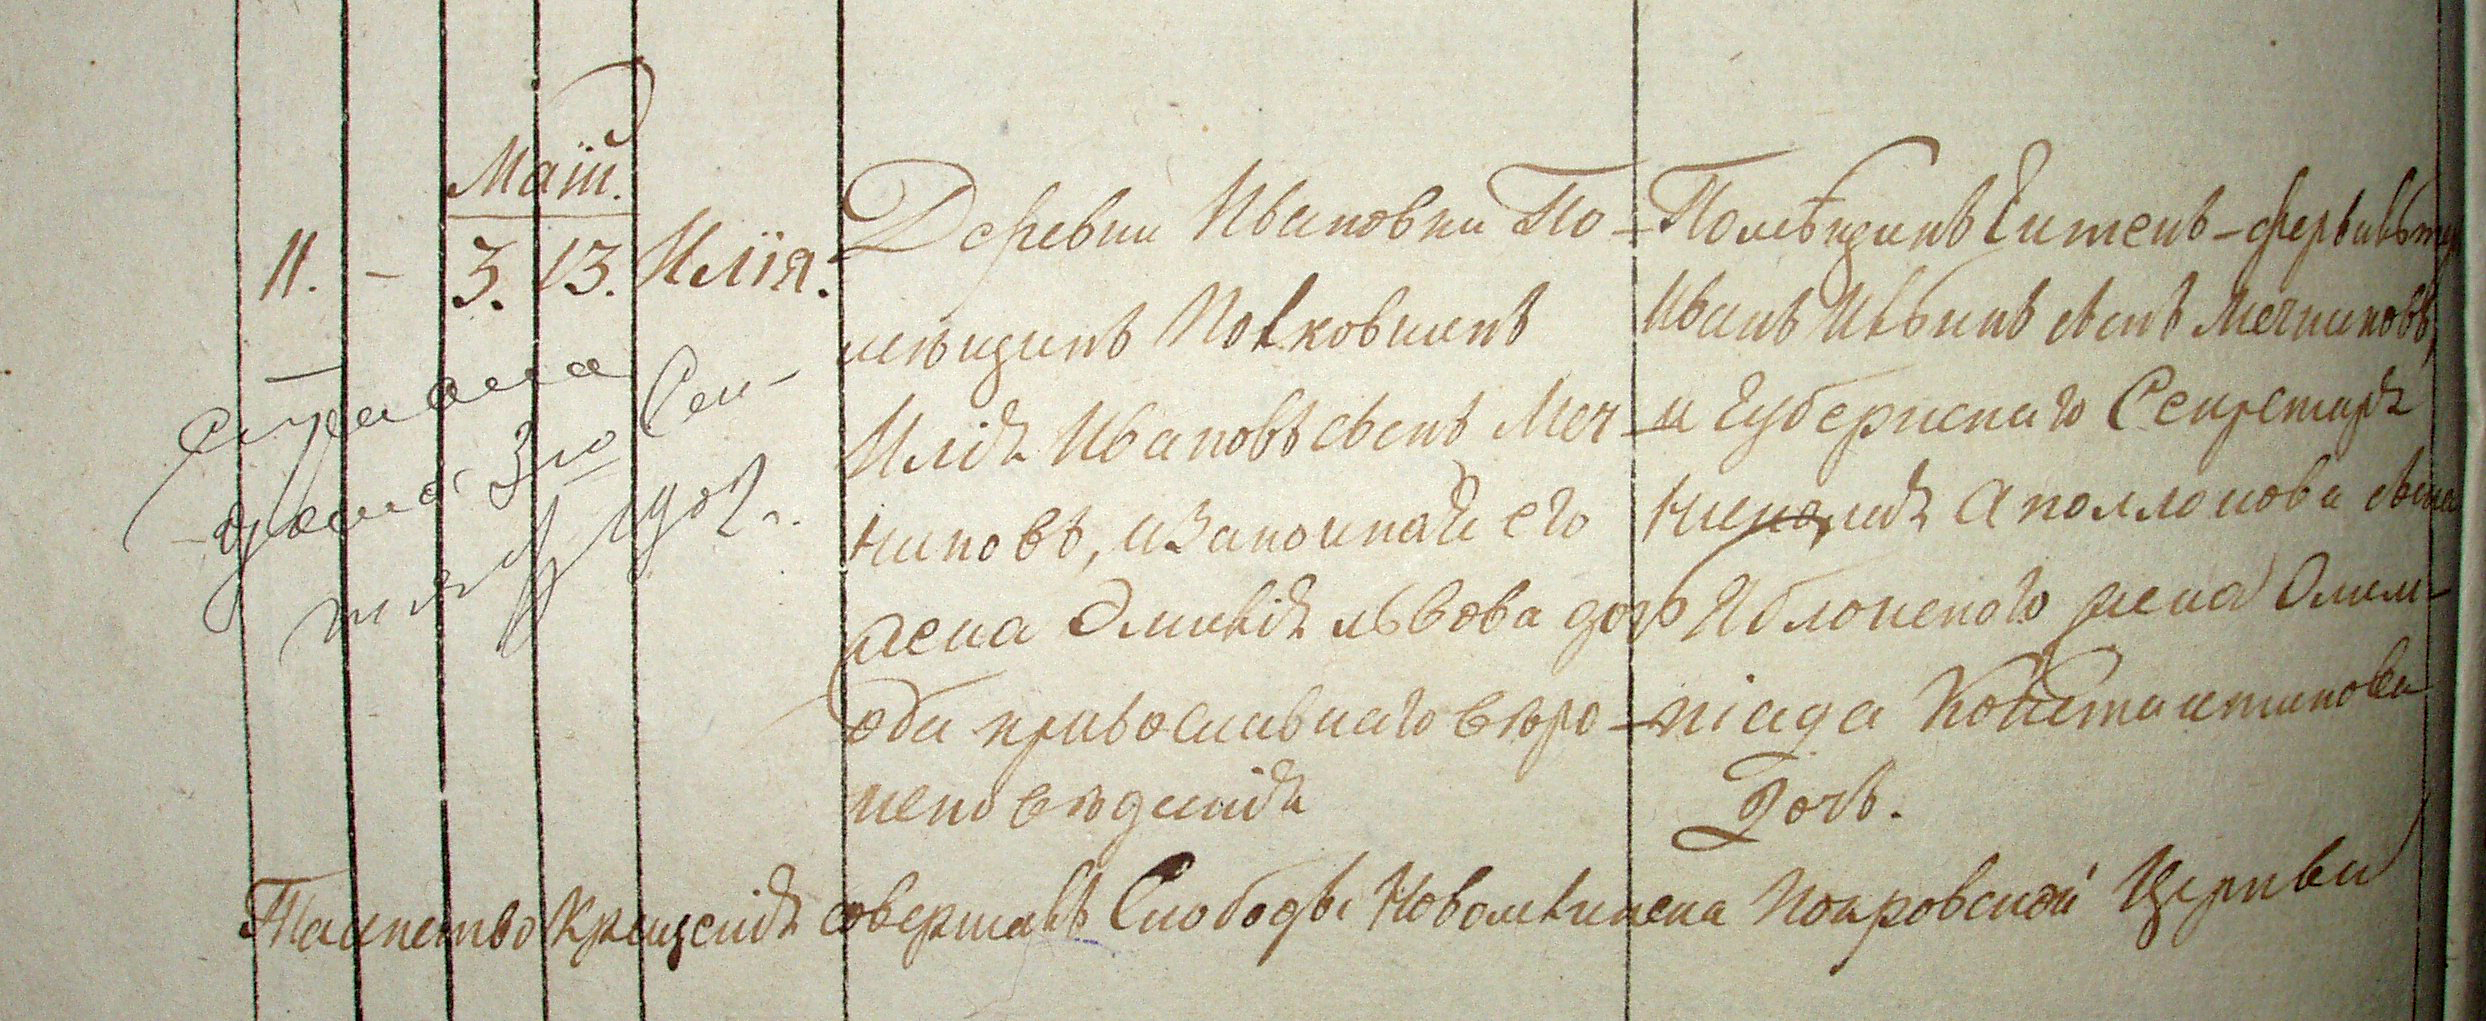 Маїй.
11. - 3. 13. Илїя.
Деревни Ивановки По-
мѣщикъ Полковникъ
Илія Ивановъ сынъ Меч-
никовъ, и законная его
жена Эмилія Львова дочь
оба православнаго вѣро-
исповѣданія
Помѣщикъ
Иванъ Ильинъ сынъ Мечниковъ,
и Губернскаго Секретаря
Николая Аполлонова сына
Яблонского жена Олим-
піада Константинова
Дочь.
Таинство Крещенія совершалъ Слободы Новомлинска Покровской Церкви